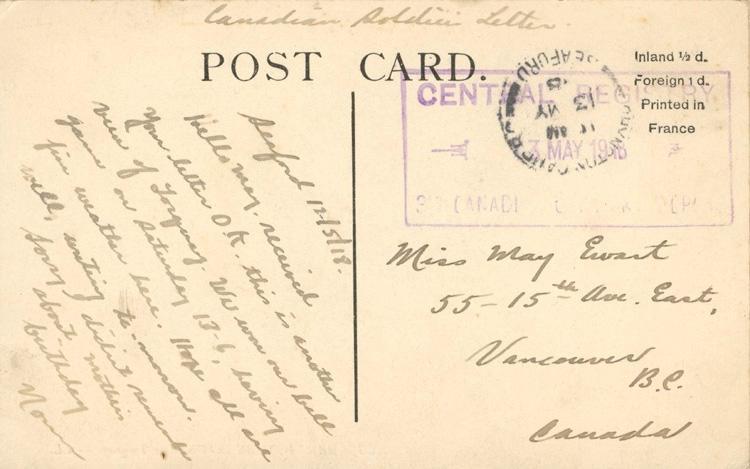 Canadian Soldier Letter.
POST CARD.
Inland ½ d.
Foreign 1 d.
Printed in
France
SEAFORD
13 MY
CENTRAL REGISTRY
13 MAY 1918
CANADI
Seaford 12/5/18.
Hello May. received
Your letter OK. this is another
view of Torquay. We won our ball
game on Saturday 13-6, having
fine weather here. Hope all are
well, writing to-morrow.
Sorry didn't remember
about mothers
birthday
Norm
Miss May Ewart
55-15th Ave. East,
Vancouver
B.C.
Canada